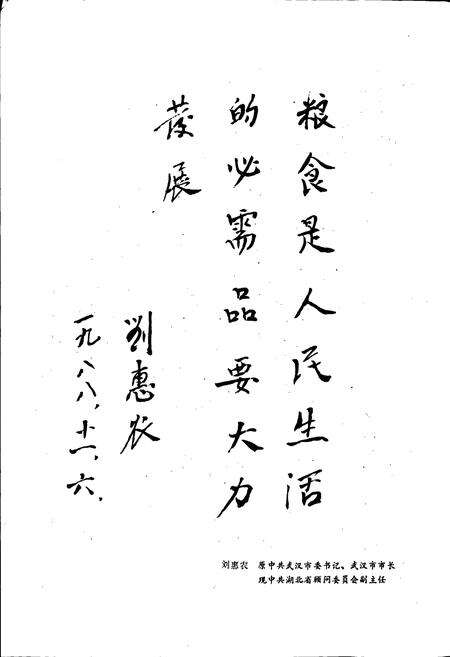 粮食是人民生活
的必需品要大力
发展
劉惠农
一九八八，十一，六，
刘惠农 原中共武汉市委书记、武汉市市长
现中共湖北省顾问委员会副主任